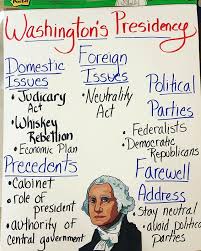 Washington's Presidency
Domestic
Issues
• Judicary
Act
• Whiskey
Rebellion
• Economic Plan
Precedents
• Cabinet
• role of
president
• authority of
central government
Foreign
Issues
• Neutrality
Act
Political
Parties
• Federalists
• Democratic
Republicans
Farewell
Address
• Stay neutral
• avoid political
parties